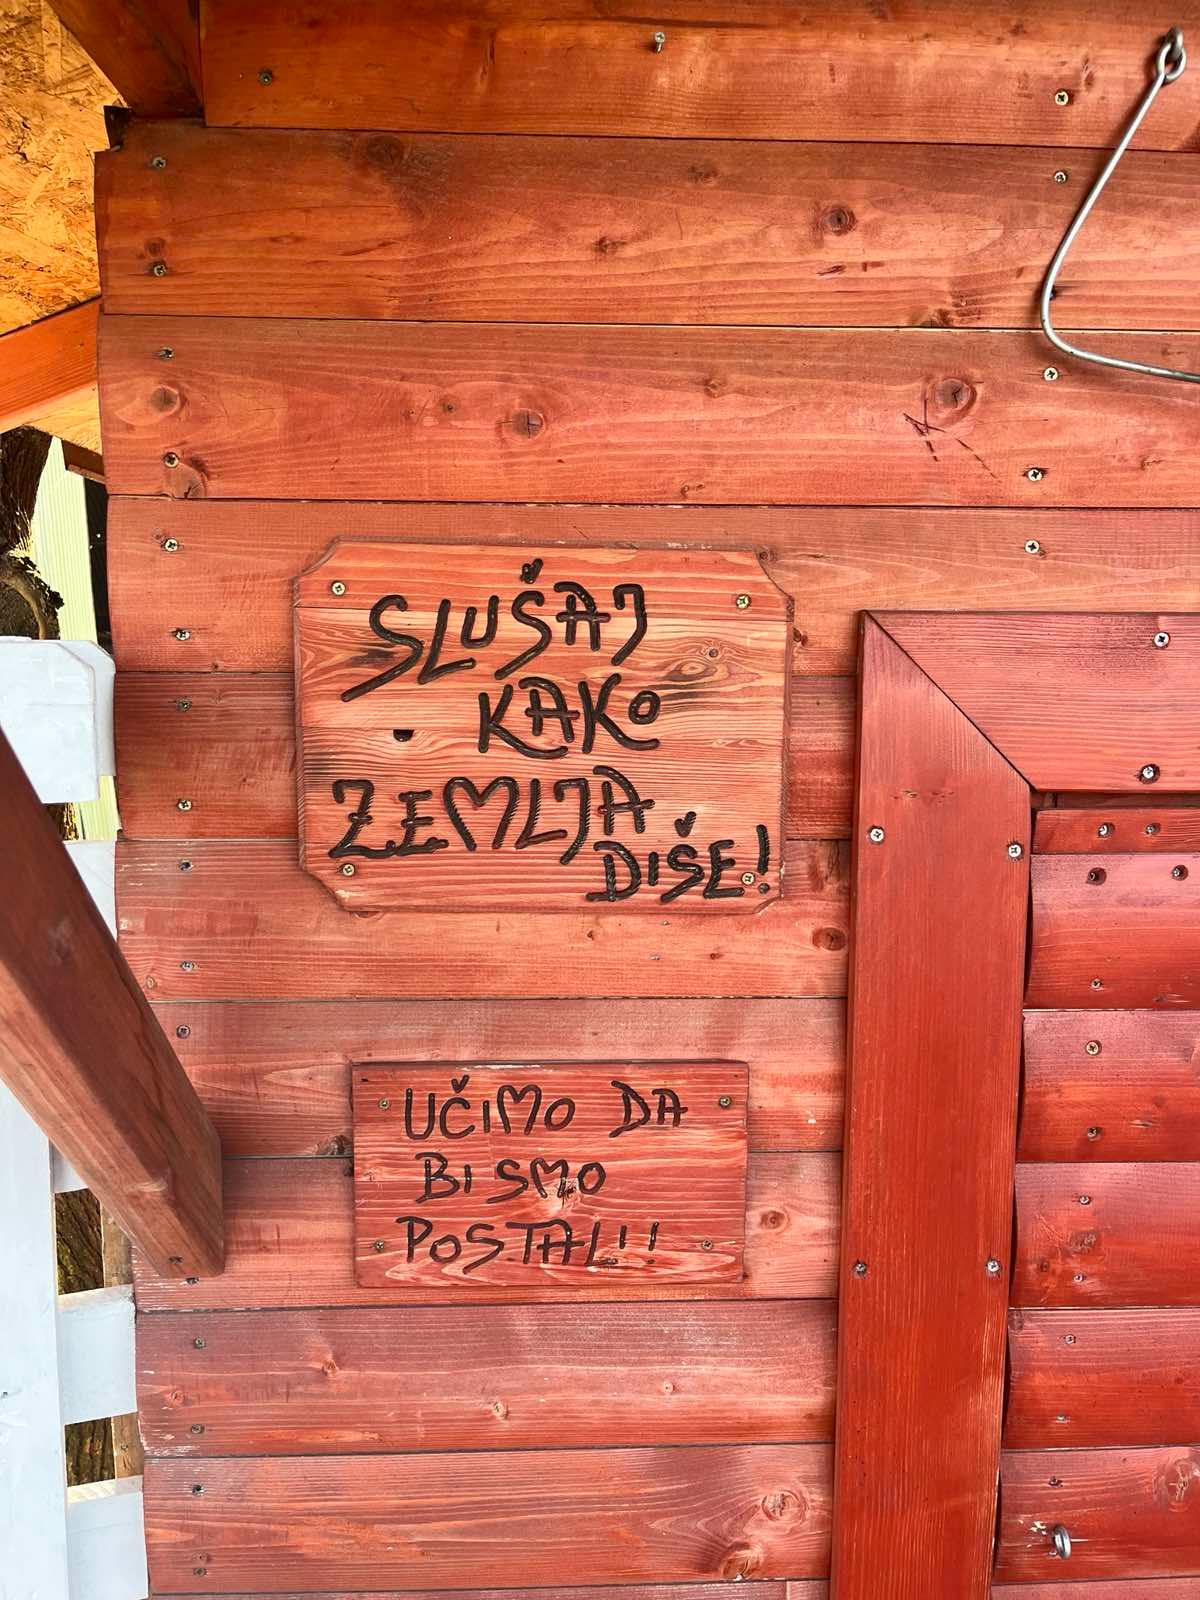 SLUŠAJ
KAKO
ZEMLJA
DIŠE!
UČIMO DA
BI SMO
POSTALI!